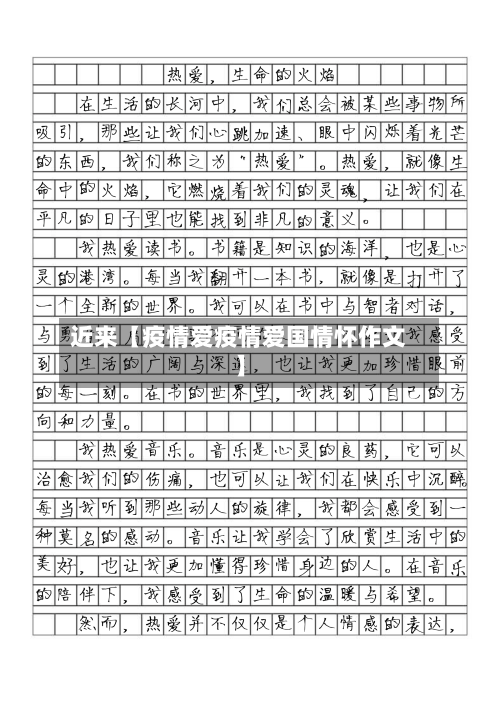 热爱，生命的火焰
在生活的长河中，我们总会被某些事物所
吸引，那些让我们心跳加速、眼中闪烁着光芒
的东西，我们称之为“热爱”。热爱，就像生
命中的火焰，它燃烧着我们的灵魂，让我们在
平凡的日子里也能找到非凡的意义。
我热爱读书。书籍是知识的海洋，也是心
灵的港湾。每当我翻开一本书，就像是打开了
一个全新的世界。我可以在书中与智者对话，
与勇
我感受
近来【疫情爱疫情爱国情怀作文
】
到了生活的广阔与深邃，也让我更加珍惜眼前
的每一刻。在书的世界里，我找到了自己的方
向和力量。
我热爱音乐。音乐是心灵的良药，它可以
治愈我们的伤痛，也可以让我们在快乐中沉醉。
每当我听到那些动人的旋律，我都会感受到一
种莫名的感动。音乐让我学会了欣赏生活中的
美好，也让我更加懂得珍惜身边的人。在音乐
的陪伴下，我感受到了生命的温暖与希望。
然而，热爱并不仅仅是个人情感的表达，